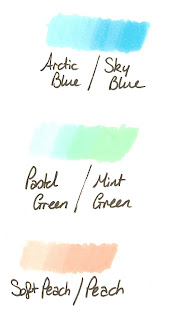 Arctic / Sky
Blue / Blue
Pastel / Mint
Green / Green
Soft Peach / Peach